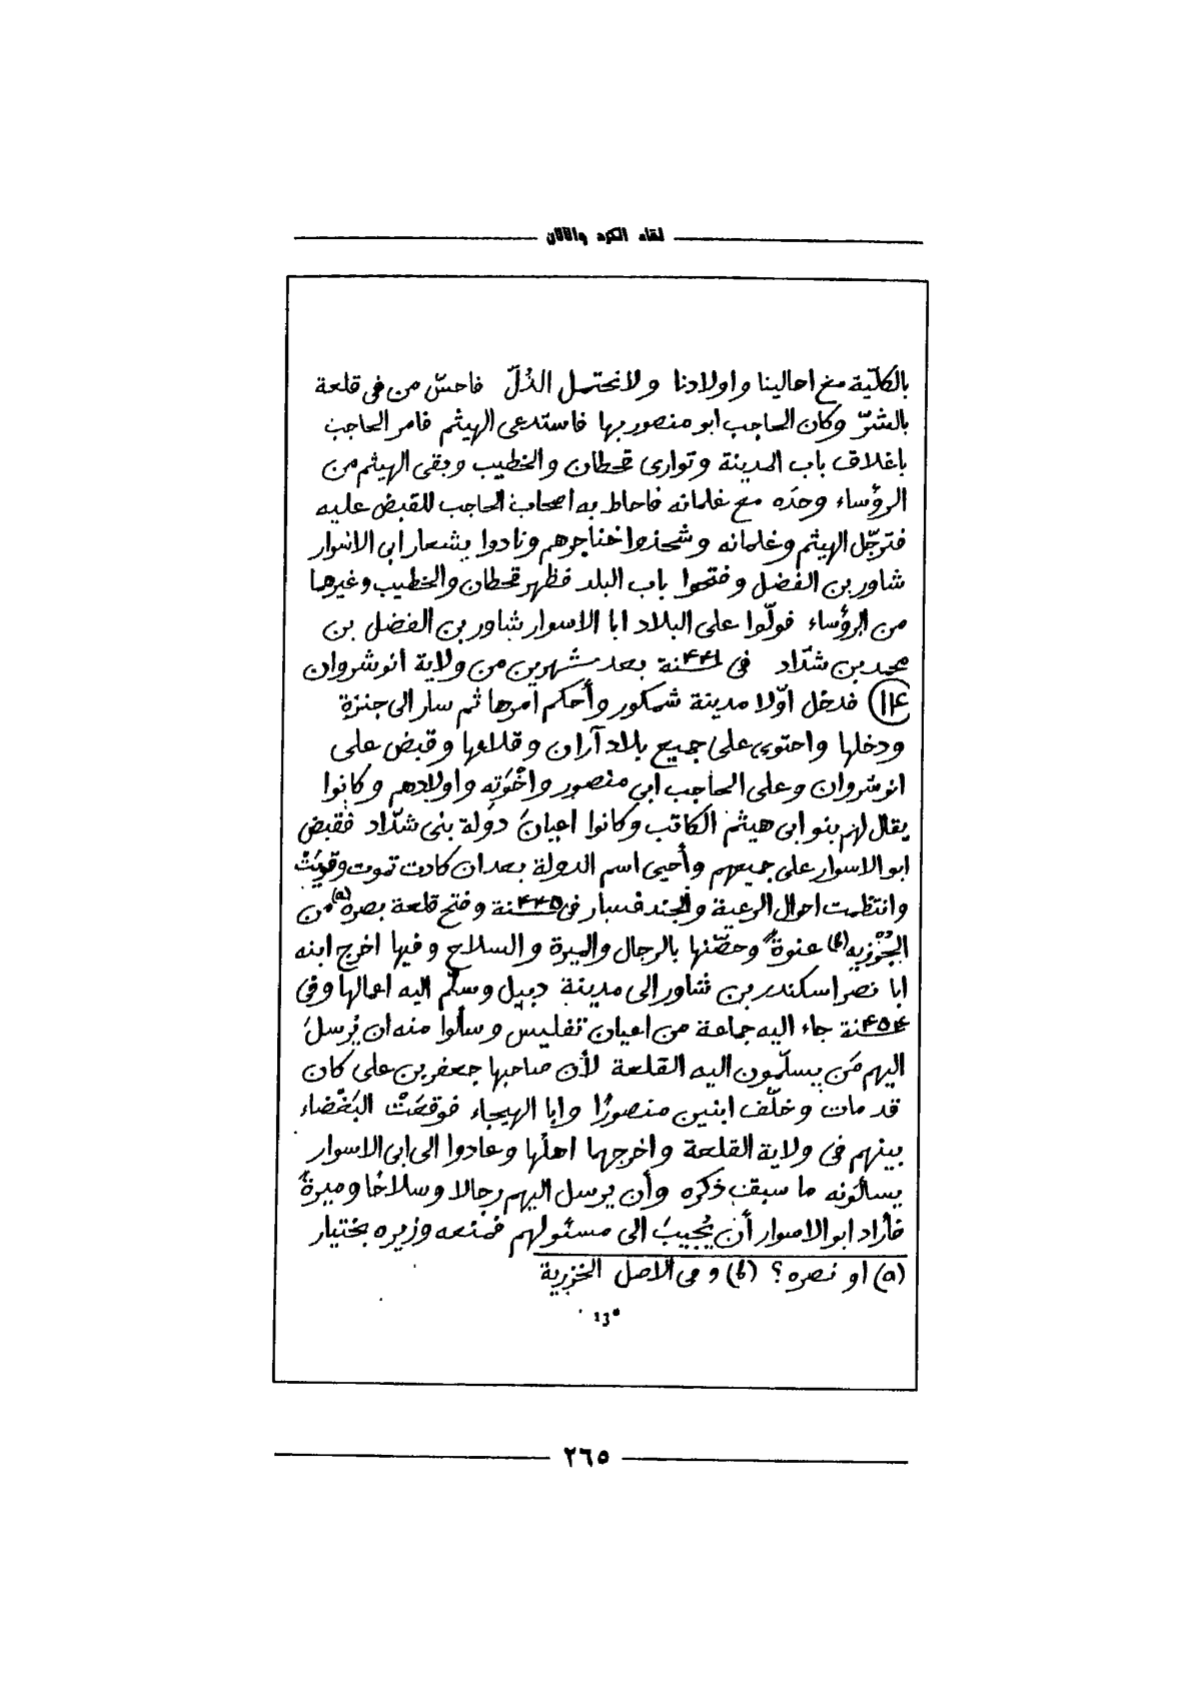 لقاء الكرد واللان
بالكلّية مع اهالينا واولادنا ولا نحتمل الذُلّ فاحسّ من فى قلعة
بالشرّ وكان الحاجب ابو منصور بها فاستدعى الهيثم فامر الحاجب
باغلاق باب المدينة وتوارى قحطان والخطيب وبقى الهيثم من
الرؤساء وحدَه مع غلمانه فاحاط به اصحاب الحاجب للقبض عليه
فترجّل الهيثم وغلمانه وشحذوا خناجرهم ونادوا بشعار ابى الاسوار
شاور بن الفضل وفتحوا باب البلد فظهر قحطان والخطيب وغيرهما
من الرؤساء فولّوا على البلاد ابا الاسوار شاور بن الفضل بن
محمد بن شدّاد فى سنة ۴۴۱ بعد شهرين من ولاية انوشروان
(۱۴) فدخل اوّلا مدينة شمكور وأحكم امرها ثم سار الى جنزة
ودخلها واحتوى على جميع بلاد آران وقلاعها وقبض على
انوشروان وعلى الحاجب ابى منصور واخْوَته واولادهم وكانوا
يقال لهم بنو ابى هيثم الكاتب وكانوا اعيانَ دولة بنى شدّاد فقبض
ابو الاسوار على جميعهم وأحيى اسم الدولة بعد ان كادت تموت وقويَتْ
وانتظمت احوال الرعية والجند فسار فى سنة ۴۴۵ وفتح قلعة بصره(a) من
الجُوْزيه(b) عنوةً وحصّنها بالرجال والميرة والسلاح وفيها اخرج ابنه
ابا نصر اسكندر بن شاور الى مدينة دبيل وسلّم اليه اعمالها وفى
سنة ۴۵۴ جاء اليه جماعة من اعيان تفليس وسألوا منه ان يُرسلَ
اليهم مَن يسلّمون اليه القلعة لأن صاحبها جعفر بن على كان
قد مات وخلّف ابنين منصورًا وابا الهيجاء فوقعَتْ البَغْضاء
بينهم فى ولاية القلعة واخرجهما اهلُها وعادوا الى ابى الاسوار
يسألونه ما سبق ذكره وأن يرسل اليهم رجالا وسلاحًا وميرةً
فأراد ابو الاسوار أن يُجيبَ الى مسئولهم فمنعه وزيره بختيار
(a) او نصره؟ (b) وفى الاصل الخزرية
13*
٢٦٥